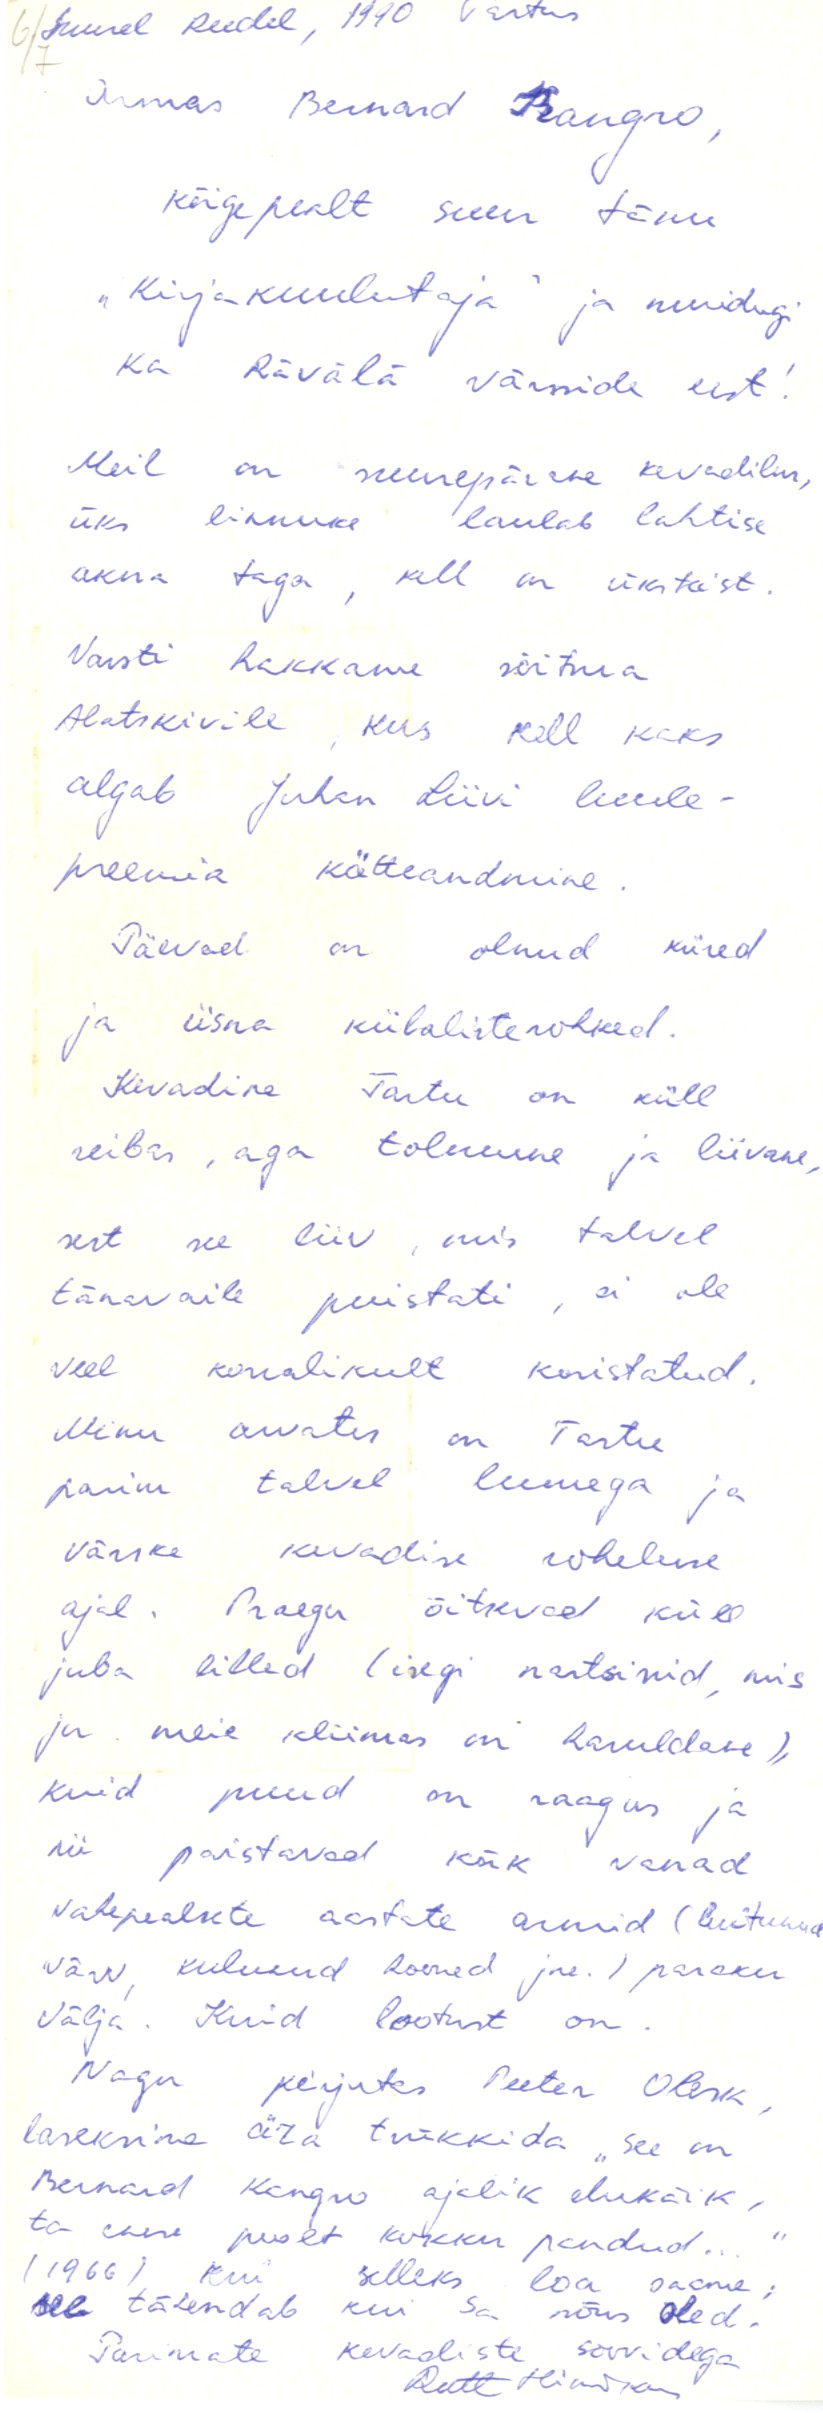 Suurel Reedel, 1990 Tartus
Armas Bernard Kangro,
kõigepealt suur tänu
„Kirjakuulutaja" ja muidugi
ka Rävälä värsside eest!
Meil on suurepärane kevadilm,
üks linnuke laulab lahtise
akna taga, kell on üksteist.
Varsti hakkame sõitma
Alatskivile, kus kell kaks
algab Juhan Liivi luule-
preemia kätteandmine.
Päevad on olnud kiired
ja üsna külalisterohked.
Kevadine Tartu on küll
reibas, aga tolmune ja liivane,
sest see liiv, mis talvel
tänavaile puistati, ei ole
veel korralikult koristatud.
Minu arvates on Tartu
parim talvel lumega ja
värske kevadise roheluse
ajal. Praegu õitsevad küll
juba lilled (isegi nartsissid, mis
ju meie kliimas on haruldane),
kuid puud on raagus ja
nii paistavad kõik vanad
vahepealsete aastate armid (luitunud
värv, kulunud hooned jne.) paraku
välja. Kuid lootust on.
Nagu kirjutas Peeter Olesk,
laseksime ära trükkida „See on
Bernard Kangro ajalik elukäik,
ta enese poolt kokku pandud..."
(1966) kui selleks loa saame;
see tähendab kui Sa nõus oled.
Parimate kevadiste soovidega
Rutt Hinrikus